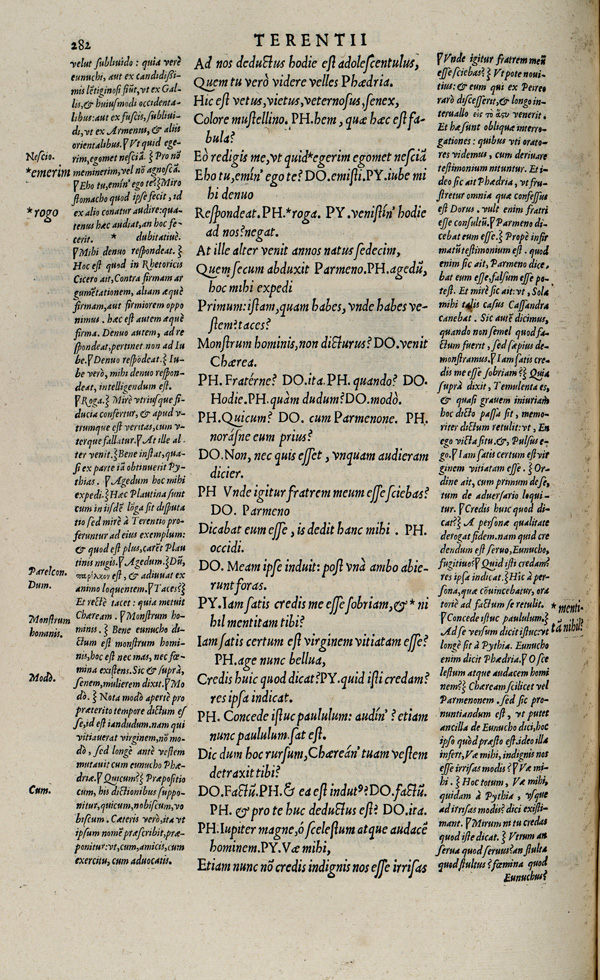 282
TERENTII
velut subluido : quia verè
eunuchi, aut ex candidißi-
mis lĕtiginosi fiūt, vt ex Gal-
lis, & huiusmodi occidenta-
libus: aut ex fuscis, subliui-
di, vt ex Armenis, & aliis
orientalibus. Vt quid ege-
Nescio.
rim, egomet nesciā. Pro nō
*emerim
meminerim, vel nō agnoscā.
Eho tu, emin' ego te? Miro
stomacho quod ipse fecit, id
*rogo
ex alio conatur audire: qua-
tenus hæc audiat, an hoc fe-
cerit. * dubitatiuè.
Mihi denuo respondeat.
Hoc est quod in Rhetoricis
Cicero ait, Contra firmam ar
gumētationem, aliam æquè
firmam, aut firmiorem oppo
nimus. hæc est autem æquè
firma. Denuo autem, ad re
spondeat, pertinet non ad Iu
be. Denuo respondeat. Iu-
be verò, mihi denuo respon-
deat, intelligendum est.
Roga. Mirè vtriusque fi-
ducia consertur, & apud v-
trumque est veritas, cum v-
terque fallatur. At ille al-
ter venit. Bene instat, qua-
si ex parte iā obtinuerit Py-
thias. Agedum hoc mihi
expedi. Hæc Plautina sunt
cum in iisdē lōga sit disputa
tio sed mirè à Terentio pro-
feruntur ad eius exemplum:
& quod est plus, carēt Plau
tinis nugis. Agedum. Dū,
Parelcon.
παρέλκον est, & adiuuat ex
Dum.
animo loquentem. Taces?
Et rectè tacet : quia metuit
Chæream. Monstrum ho-
Monstrum
minis. Bene eunucho di-
hominis.
ctum est monstrum homi-
nis, hoc est nec mas, nec fœ-
mina existens. Sic & suprà,
senem, mulierem dixit. Mo
Modò.
dò. Nota modò apertè pro
præterito tempore dictum es
se, id est iandudum. nam qui
vitiauerat virginem, nō mo-
dò, sed longè antè vestem
mutauit cum eunucho Phæ-
driæ. Quicum? Præpositio
Cum.
cum, his dictionibus suppo-
nitur, quicum, nobiscum, vo
biscum. Cæteris verò, ita vt
ipsum nomē præscribit, præ-
ponitur: vt, cum, amicis, cum
exercitu, cum aduocatis.
Ad nos deductus hodie est adolescentulus,
Quem tu verò videre velles Phædria.
Hic est vetus, vietus, veternosus, senex,
Colore mustellino. PH. hem, quæ hæc est fa-
bula?
Eò redigis me, vt quid*egerim egomet nesciā
Eho tu, emín' ego te? DO. emisti. PY. iube mi
hi denuo
Respondeat. PH. *roga. PY. venistín' hodie
ad nos? negat.
At ille alter venit annos natus sedecim,
Quem secum abduxit Parmeno. PH. agedū,
hoc mihi expedi
Primum: istam, quam habes, vnde habes ve-
stem? taces?
Monstrum hominis, non dicturus? DO. venit
Chærea.
PH. Fratérne? DO. ita. PH. quando? DO.
Hodie. PH. quàm dudum? DO. modò.
PH. Quicum? DO. cum Parmenone. PH.
norásne eum prius?
DO. Non, nec quis esset, vnquam audieram
dicier.
PH Vnde igitur fratrem meum esse sciebas?
DO. Parmeno
Dicabat eum esse, is dedit hanc mihi. PH.
occidi.
DO. Meam ipse induit: post vnà ambo abie-
runt foras.
PY. Iam satis credis me esse sobriam, & * ni
hil mentitam tibi?
Iam satis certum est virginem vitiatam esse?
PH. age nunc bellua,
Credis huic quod dicat? PY. quid isti credam?
res ipsa indicat.
PH. Concede istuc paululum: audín'? etiam
nunc paululum. sat est.
Dic dum hoc rursum, Chæreán' tuam vestem
detraxit tibi?
DO. Factū. PH. & ea est indut9? DO. factū.
PH. & pro te huc deductus est? DO. ita.
PH. Iupiter magne, ô scelestum atque audacē
hominem. PY. Væ mihi,
Etiam nunc nō credis indignis nos esse irrisas
Vnde igitur fratrem meū
esse sciebas? Vt pote noui-
tius: & eum qui ex Peireo
rarò discesserit, & longo in-
teruallo εἰς τὸ ἄστυ venerit.
Et hæ sunt obliquæ interro-
gationes : quibus vti orato-
res videmus, cum deriuare
testimonium nituntur. Et i-
deo sic ait Phædria, vt fru-
stretur omnia quæ confessus
est Dorus. vult enim fratri
esse consultū. Parmeno di-
cebat eum esse. Propè infir
matū testimonium est. quod
enim sic ait, Parmeno dice-
bat eum esse, falsum esse po-
test. Et mirè sic ait: vt, Sola
mihi talis casus Cassandra
canebat. Sic autē dicimus,
quando non semel quod fa-
ctum fuerit, sed sæpius de-
monstramus. Iam satis cre-
dis me esse sobriam? Quia
suprà dixit, Temulenta es,
& quasi grauem iniuriam
hoc dicto passa sit, memo-
riter dictum retulit: vt, En
ego victa situ. &, Pulsus e-
go. Iam satis certum est vir
ginem vitiatam esse. Or-
dine ait, cum primum de se,
tum de aduersario loqui-
tur. Credis huic quod di-
cat? A persona qualitate
derogat fidem. nam quid cre
dendum est seruo, Eunucho,
fugitiuo? Quid isti credam?
res ipsa indicat. Hic à per-
sona, quæ cōuincebatur, ora
toriè ad factum se retulit.
*menti-
Concede istuc paululum.
tā nihil?
Ad se versum dicit istuc: vt
longè sit à Pythia. Eunucho
enim dicit Phædria. O sce
lestum atque audacem homi
nem? Chæream scilicet vel
Parmenonem. sed sic pro-
nuntiandum est, vt putet
ancilla de Eunucho dici, hoc
ipso quòd præsto est. ideo illa
infert, Væ mihi, indignis nos
esse irrisas modis? Væ mi-
hi. Hoc totum, Væ mihi,
quidam à Pythia, vsque
ad irrisas modis? dici existi-
mant. Mirum ni tu credas
quod iste dicat. Vtrum an
serua quod seruus? an stulta
quod stultus? fœmina quod
Eunuchus?